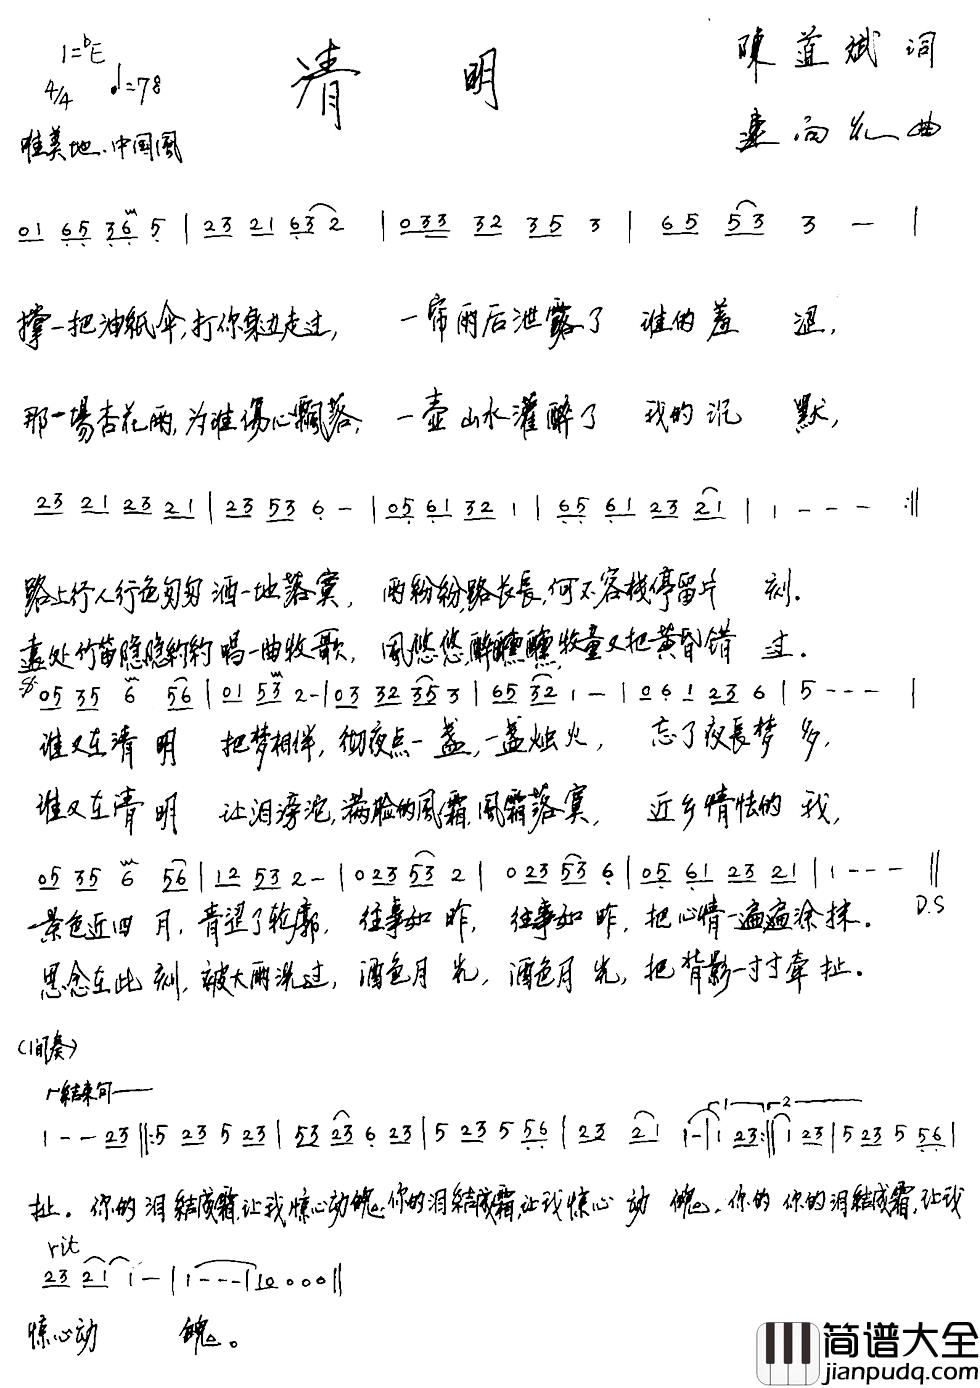 1=ᵇE
4/4 ♩=78
清 明
陳道斌 词
曲
唯美地、中国風
01 65 36 5 | 23 21 63 2 | 033 32 35 3 | 65 53 3 — |
撑一把油紙伞,打你身边走过, 一帘雨后泄露了 谁的羞 涩,
那一場杏花雨,为谁傷心飘落, 一壶山水灌醉了 我的沉 默,
23 21 23 21 | 23 53 6 - | 05 61 32 1 | 65 61 23 21 | 1 - - - :||
路上行人行色匆匆洒一地落寞, 雨纷纷,路长長,何不客栈停留片 刻.
遠处竹笛隐隐约约唱一曲牧歌, 風悠悠,醉醺醺,牧童又把黄昏错 过.
05 35 6 56 | 01 53 2 - | 03 32 35 3 | 65 32 1 - | 06 1 23 6 | 5 - - - |
谁又在清 明 把梦相伴,彻夜点一 盏,一盏烛火, 忘了夜長梦 多,
谁又在清 明 让泪滂沱,满脸的風霜,風霜落寞, 近乡情怯的 我,
05 35 6 56 | 12 53 2 - | 023 53 2 | 023 53 6 | 05 61 23 21 | 1 - - - ||
D.S
景色近四 月, 青涩了轮廓, 往事如 昨, 往事如 昨, 把心情一遍遍涂抹.
思念在此 刻, 被大雨洗过, 酒色月 光, 酒色月 光, 把背影一寸寸牵 扯.
(间奏)
结束句
1 - - 23 ||: 5 23 5 23 | 53 23 6 23 | 5 23 5 56 | 23 21 | 1 - | 1 23 :|| 1 23 | 5 23 5 56 |
扯. 你的泪结成霜,让我惊心动魄.你的泪结成霜,让我惊心 动 魄. 你的 你的泪结成霜,让我
rit
23 21 1 - | 1 - - - | 10 0 0 0 ||
惊心动 魄。
简谱大全
jianpudq.com